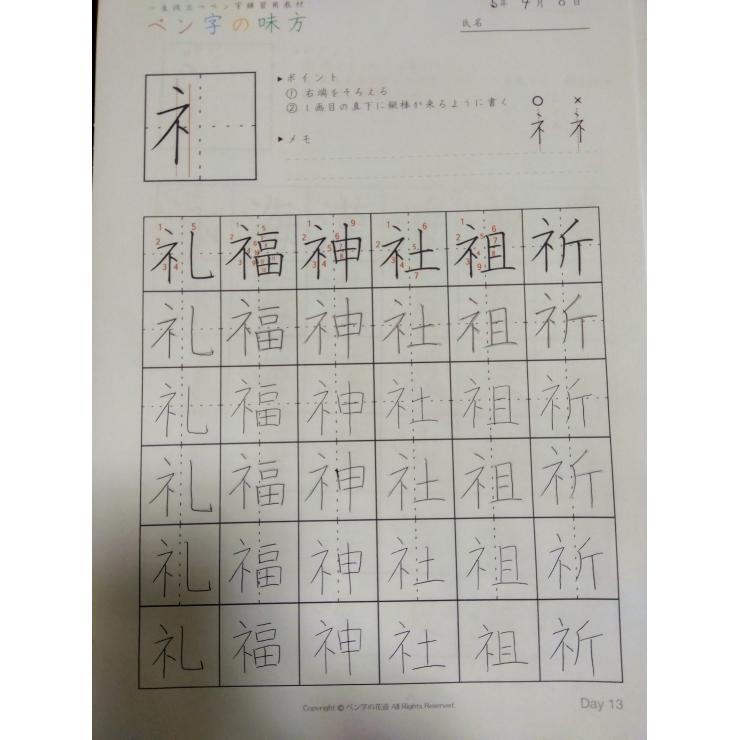 一生役立つペン字練習用教材
ペン字の味方
5年 4月 8日
氏名
ネ
▶ポイント
① 右端をそろえる
② 1画目の真下に縦棒が来るように書く
○ ×
ネ ネ
▶メモ
礼 福 神 社 祖 祈
礼 福 神 社 祖 祈
礼 福 神 社 祖 祈
礼 福 神 社 祖 祈
礼 福 神 社 祖 祈
礼 福 神 社 祖 祈
Copyright © ペン字の花道 All Rights Reserved.
Day 13